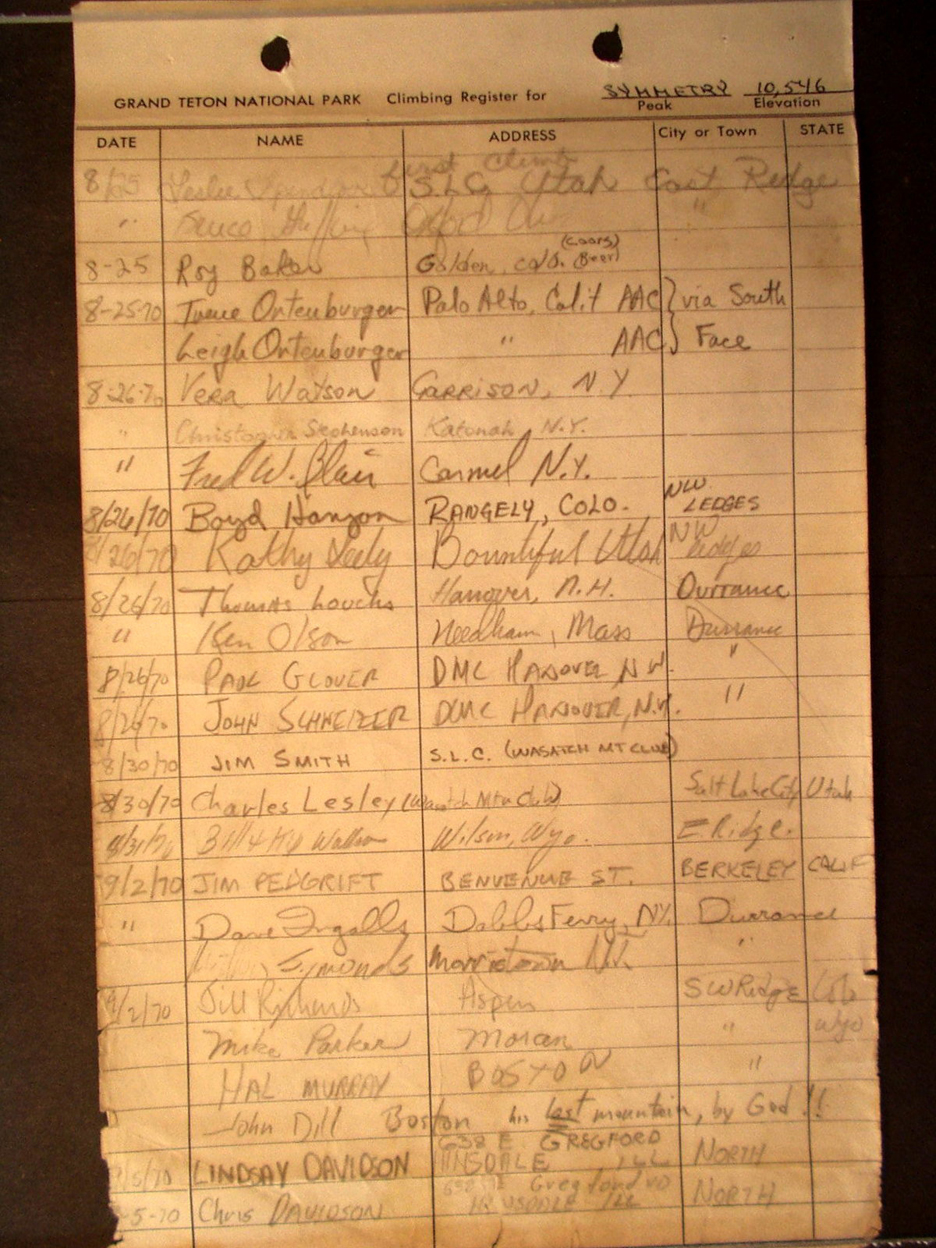 GRAND TETON NATIONAL PARK Climbing Register for SYMMETRY 10,546
Peak Elevation
DATE NAME ADDRESS City or Town STATE
First Climb
8/25 Leslie S.L.C. Utah East Ridge
" Bruce "
(Coors)
8-25 Roy Baker Golden, colo. Beer)
8-25-70 Irene Ortenburger Palo Alto, Calif AAC } via South
Leigh Ortenburger " AAC } Face
8-26-70 Vera Watson GARRISON, N.Y.
" Christopher Stephenson Katonah N.Y.
" Fred W. Blair Carmel N.Y.
8/26/70 Boyd Hanzon RANGELY, COLO. NW LEDGES
8/26/70 Kathy Bountiful Utah NW Ledges
8/26/70 Thomas Loucks Hanover, N.H. Durrance
" Ken Olson Needham, Mass Durrance
8/26/70 PAUL GLOVER DMC HANOVER N.H. "
8/26/70 JOHN SCHWEIZER DMC HANOVER, N.H. "
8/30/70 JIM SMITH S.L.C. (WASATCH MT CLUB)
8/30/70 Charles Lesley (Wasatch Mtn Club) Salt Lake City Utah
8/31/70 Bill & Wilson, Wyo. E Ridge.
9/2/70 JIM PEDGRIFT BENVENUE ST. BERKELEY CALIF
" Dave Ingalls Dobbs Ferry, NY. Durrance
Symonds Morristown N.J. "
9/2/70 Jill Richards Aspen SW Ridge Colo
Mike Parker Moran " Wyo
HAL MURRAY BOSTON "
John Dill Boston his last mountain, by God!!
638 E GREGFORD
9/5/70 LINDSAY DAVIDSON HINSDALE ILL NORTH
638 E Gregford RD
9-5-70 Chris DAVIDSON HINSDALE ILL NORTH